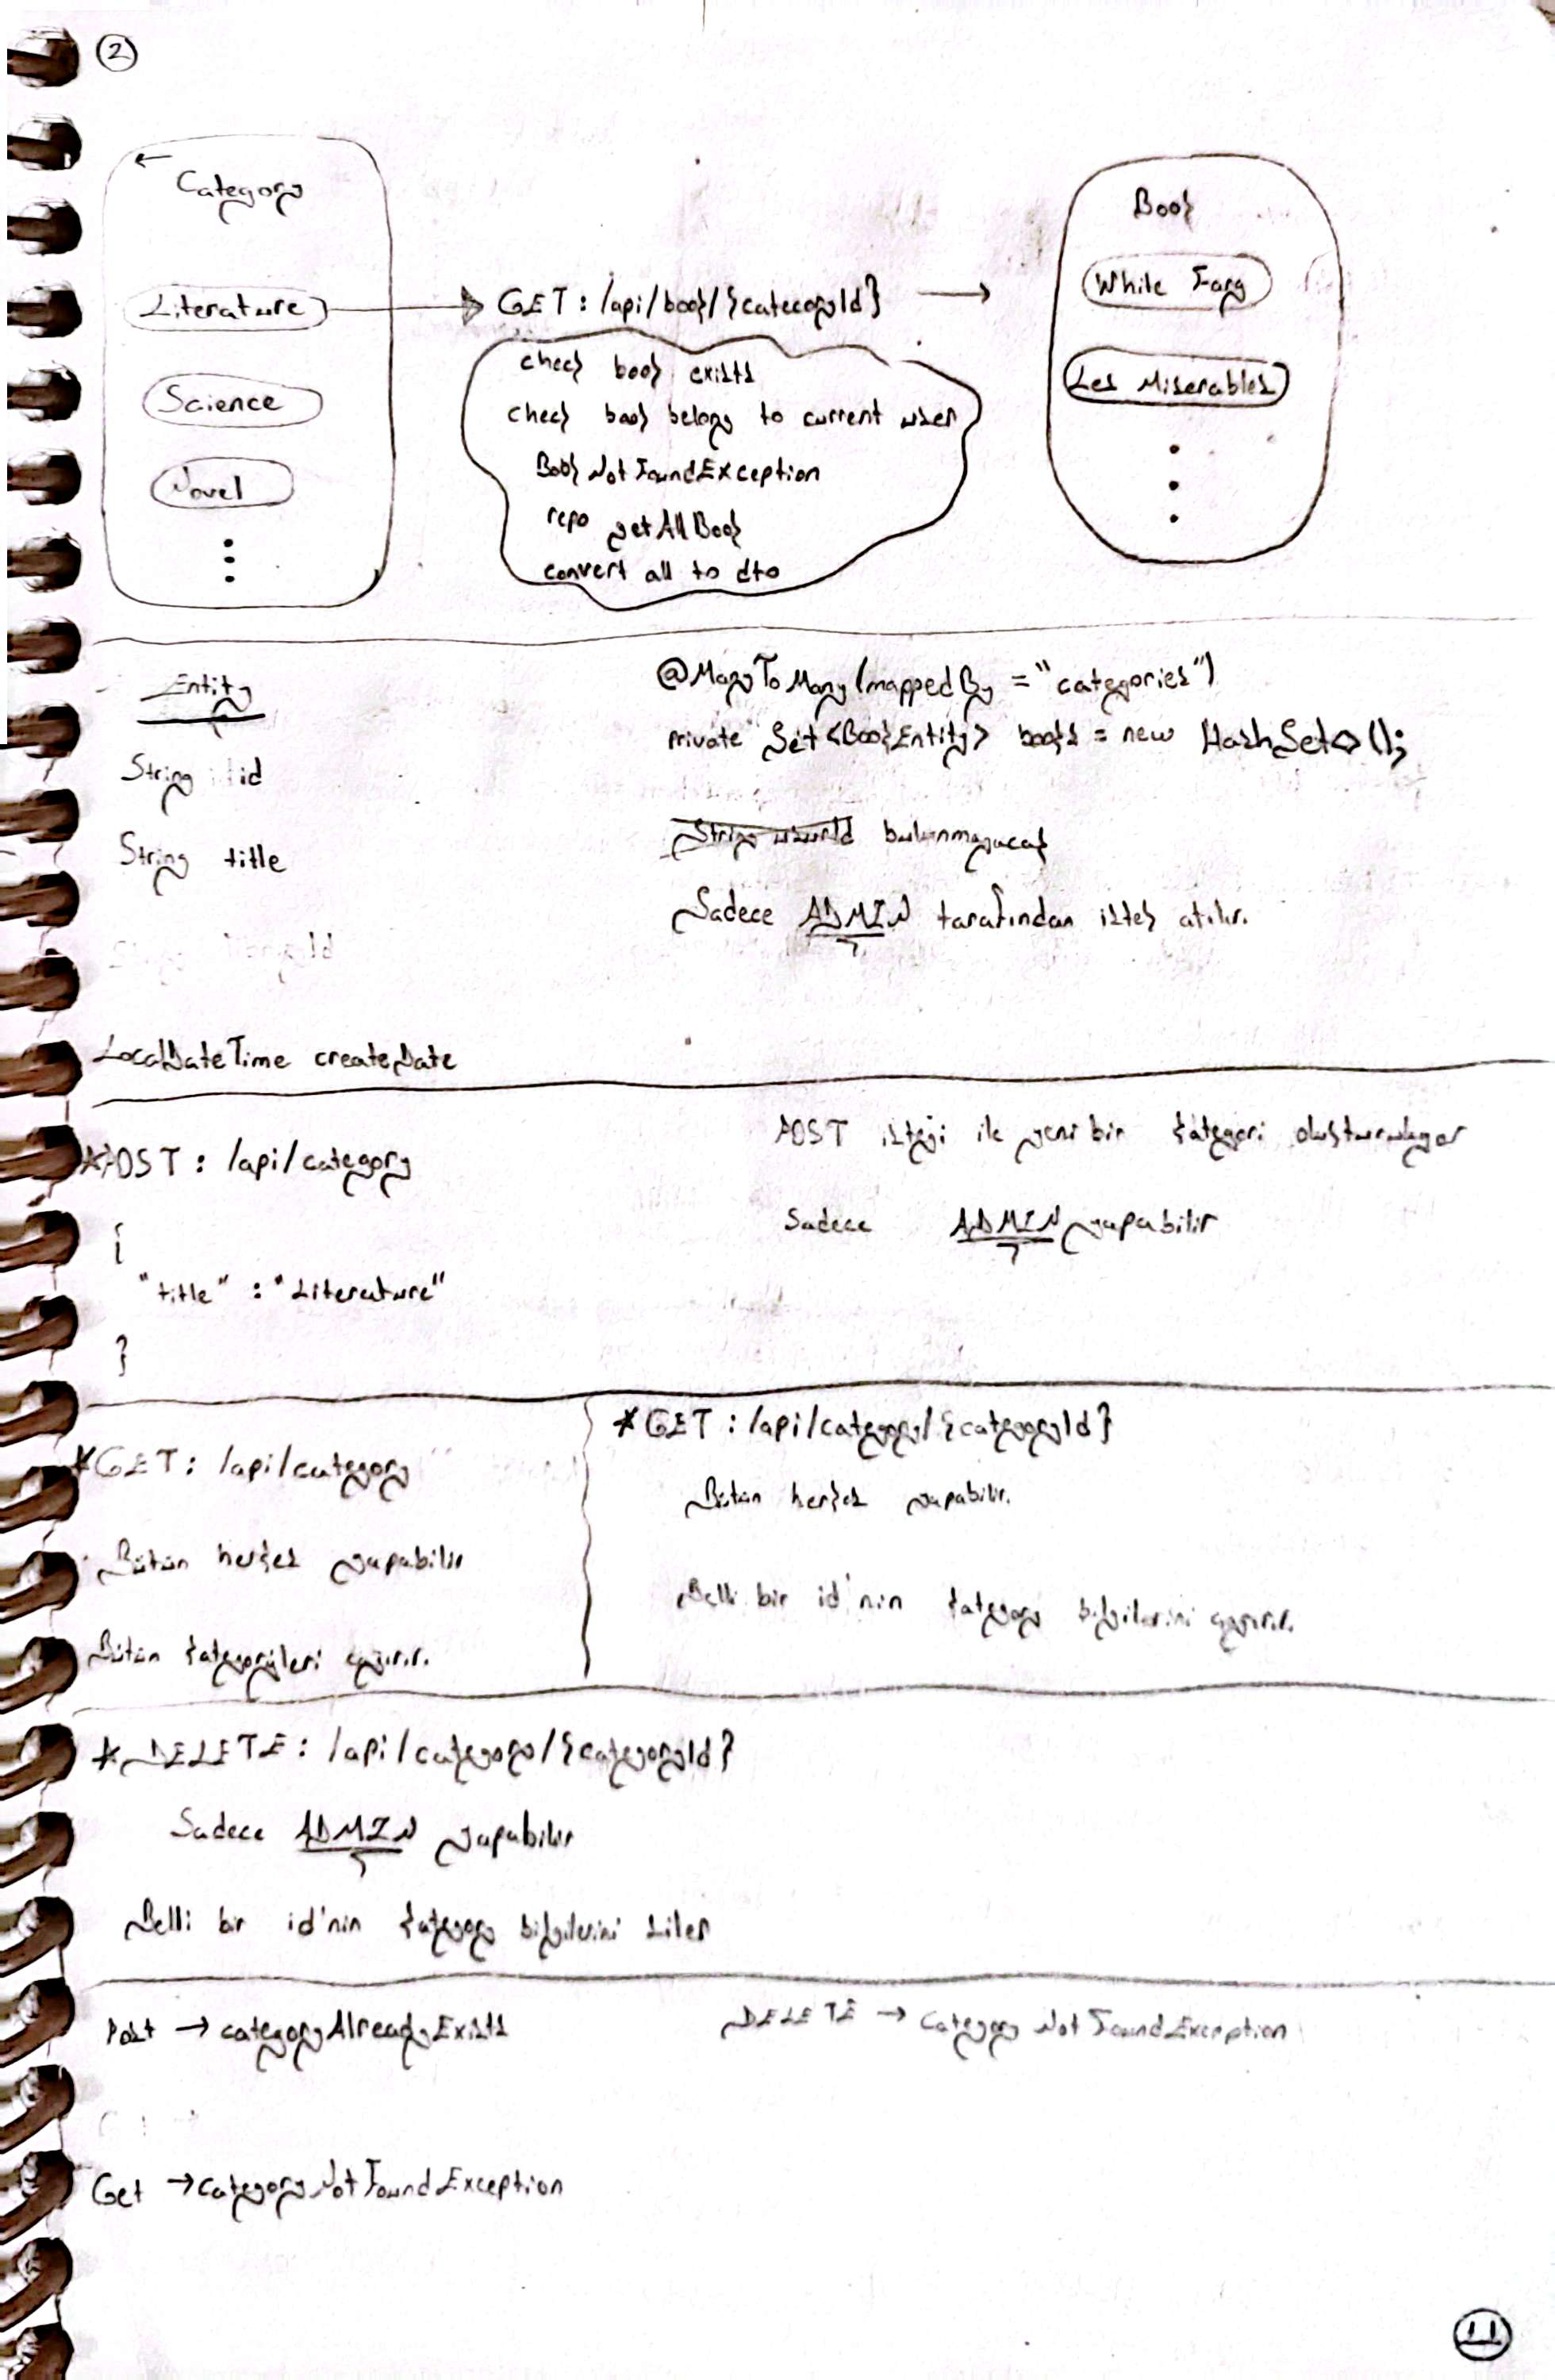 2
←
Category
Literature
Science
Novel
GET : /api/book/{catecoryId}
check book exists
check book belong to current user
BookNotFoundException
repo getAllBook
convert all to dto
Book
While Fang
Les Miserables
Entity
String id
String title
LocalDateTime createDate
@ManyToMany(mappedBy = "categories")
private Set<BookEntity> books = new HashSet<>();
String userId bulunmayacak
Sadece ADMIN tarafından istek atılır.
*POST : /api/category
{
"title" : "Literature"
}
POST isteği ile yeni bir kategori oluşturuluyor
Sadece ADMIN yapabilir
*GET : /api/category
Bütün herkes yapabilir
Bütün kategoryleri
*GET : /api/category/{categoryId}
Bütün herkes yapabilir.
Belli bir id'nin kategory bilgilerini
*DELETE : /api/category/{categoryId}
Sadece ADMIN yapabilir
Belli bir id'nin kategory bilgilerini siler
Post → categoryAlreadyExists
DELETE → CategoryNotFoundException
Get → categoryNotFoundException
11